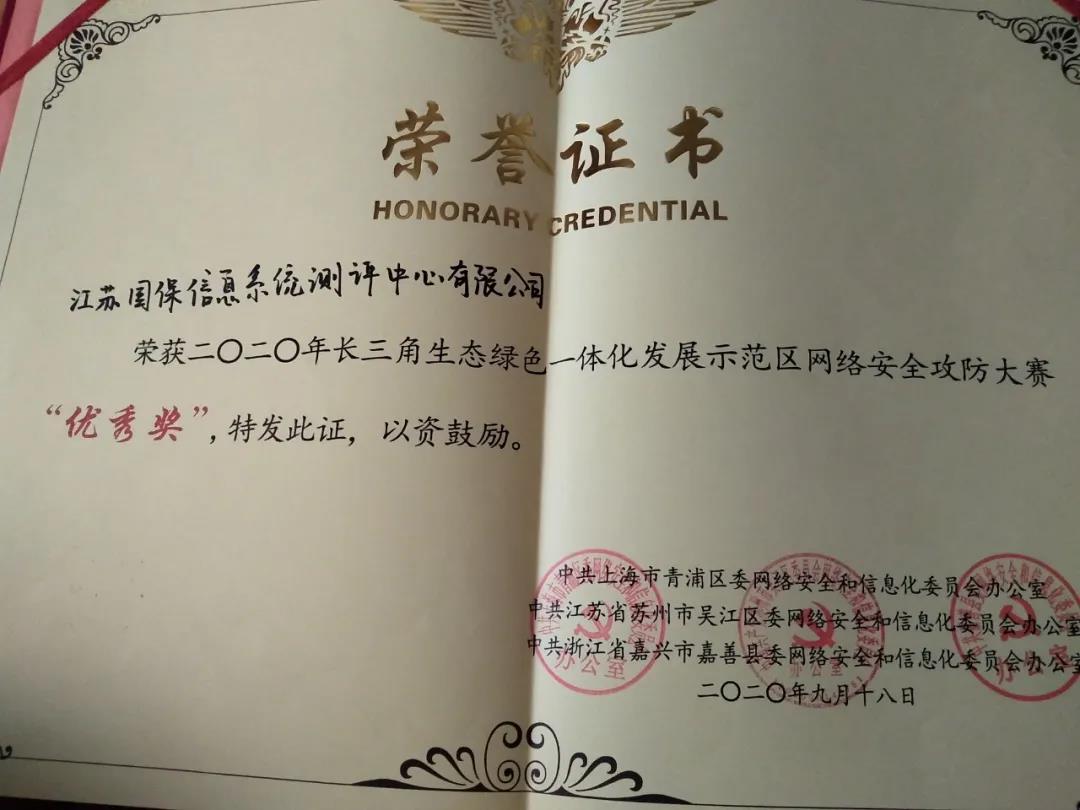 荣誉证书
HONORARY CREDENTIAL
江苏国保信息系统测评中心有限公司
荣获二〇二〇年长三角生态绿色一体化发展示范区网络安全攻防大赛
“优秀奖”，特发此证，以资鼓励。
中共上海市青浦区委网络安全和信息化委员会办公室
中共江苏省苏州市吴江区委网络安全和信息化委员会办公室
中共浙江省嘉兴市嘉善县委网络安全和信息化委员会办公室
二〇二〇年九月十八日
办公室
办公室
办公室